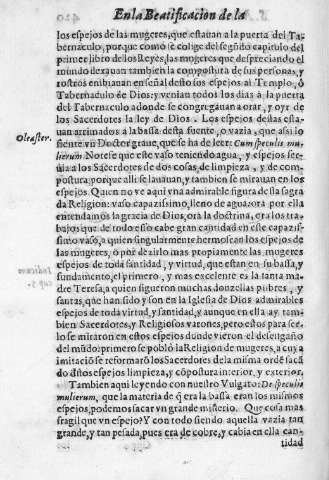 En la Beatificacion de la
los espejos de las mugeres, que estauan a la puerta del Ta-
bernaculo, porque como se colige del segũdo capitulo del
primer libro de los Reyes, las mugeres que despreciando el
mundo dexauan tambien la compostura de sus personas, y
rostros embiauan en señal desto sus espejos al Templo, ò
Tabernaculo de Dios: y venian todos los dias à la puerta
del Tabernaculo adonde se congregauan a orar, y oyr de
los Sacerdotes la ley de Dios. Los espejos destas esta-
uan arrimados a la bassa desta fuente, o vazia, que assi lo
Oleaster.
siente vn Doctor graue, que se ha de leer: Cum speculis mu-
lierum Notese que este vaso teniendo agua, y espejos ser-
uia a los Sacerdotes de dos cosas, de limpieza, y de com-
postura, porque alli se lauauan, y tambien se mirauan en los
espejos. Quien no ve aqui vna admirable figura desta sagra
da Religion: vaso capazissimo, lleno de agua, ora por ella
entendamos la gracia de Dios, ora la doctrina, ora los tra-
bajos que de todo esso cabe gran cantidad en este capazis-
simo vaso, a quien singularmente hermosean los espejos de
las mugeres, o por dezirlo mas propiamente las mugeres
espejos de toda santidad, y virtud, que estan en su bassa, y
fundamento, el primero, y mas excelente es la santa ma-
dre Teresa, a quien siguieron muchas donzellas pobres, y
santas, que han sido y son en la Iglesia de Dios admirables
espejos de toda virtud, y santidad, y aunque en ella ay tam-
bien Sacerdotes, y Religiosos varones, pero estos para ser-
lo se miraron en estos espejos donde vieron el desengaño
del mũdo: primero se poblò la Religion de mugeres, a cuya
imitaciõ se reformarõ los Sacerdotes de la misma ordẽ sacã
do destos espejos limpieza, y cõpostura interior, y exterior.
Tambien aqui leyendo con nuestro Vulgato: De speculis
mulierum, que la materia de q̃ era la bassa eran los mismos
espejos, podemos sacar vn grande misterio. Que cosa mas
fragil que vn espejo? Y con todo siendo aquella vazia tan
grande, y tan pesada, pues era de cobre, y cabia en ella can
tidad